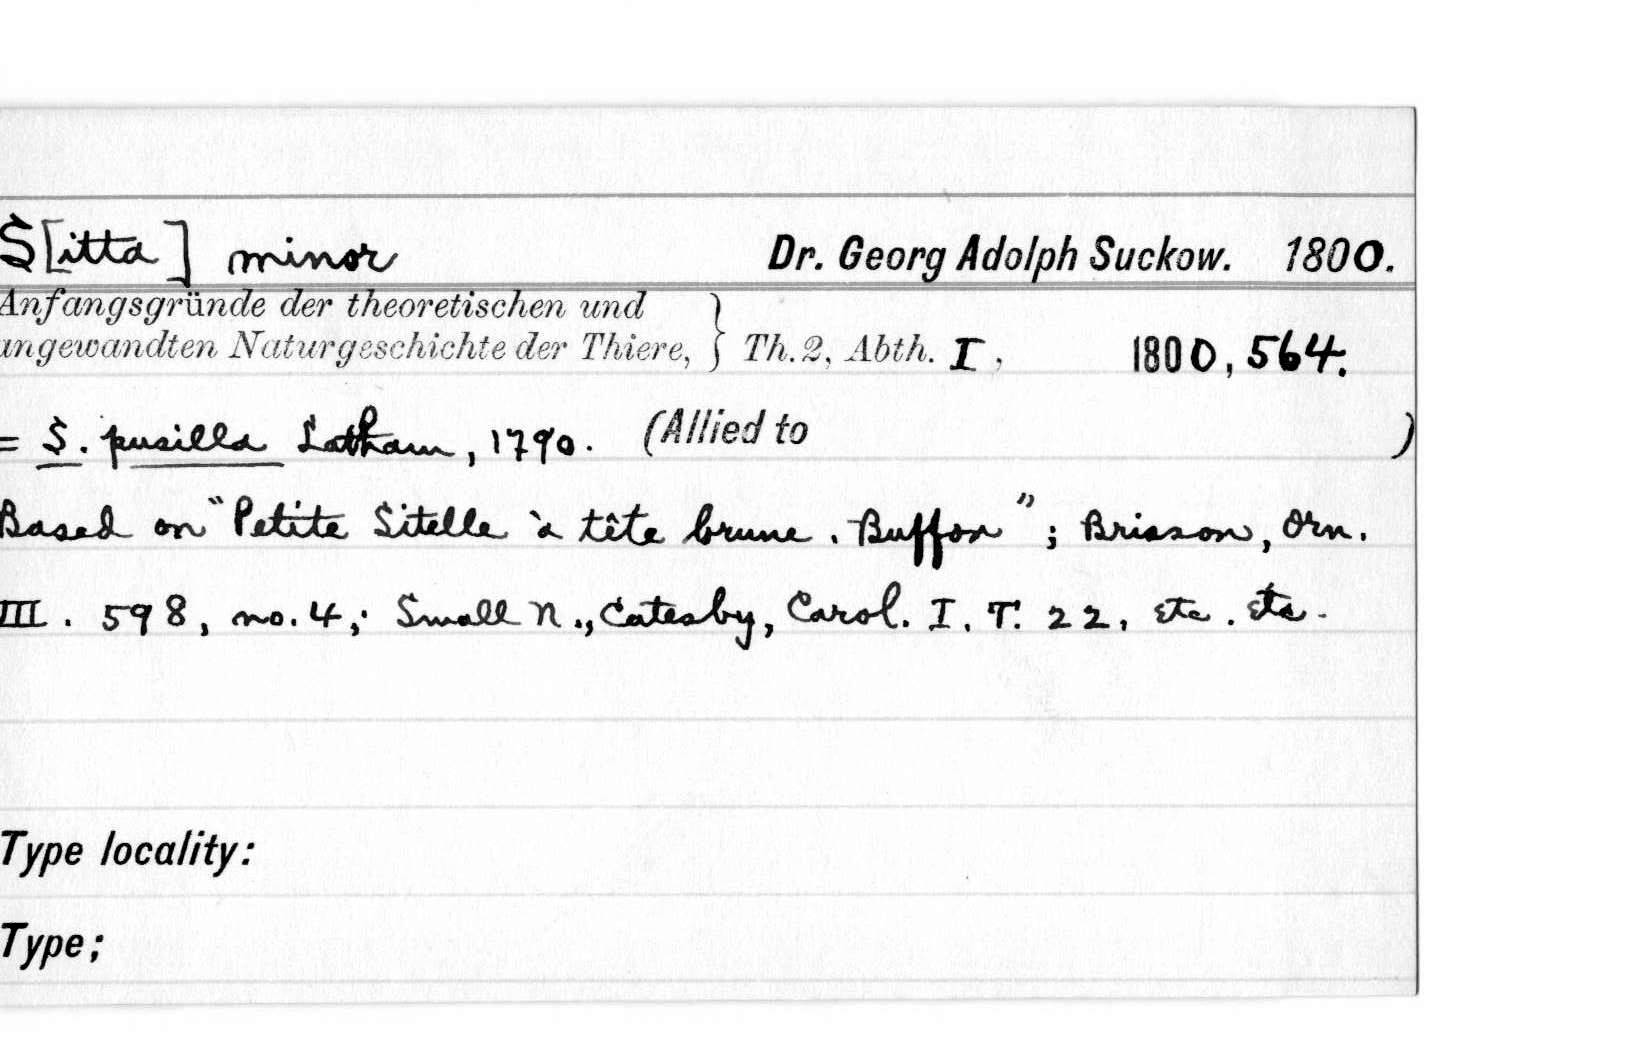 S[itta] minor Dr. Georg Adolph Suckow. 1800.
Anfangsgründe der theoretischen und
angewandten Naturgeschichte der Thiere, } Th. 2, Abth. I, 1800, 564.
= S. pusilla Latham, 1790. (Allied to )
Based on "Petite Sitelle à tête brune. Buffon"; Brisson, Orn.
III. 598, no. 4; Small N., Catesby, Carol. I. T. 22, etc. etc.
Type locality:
Type;